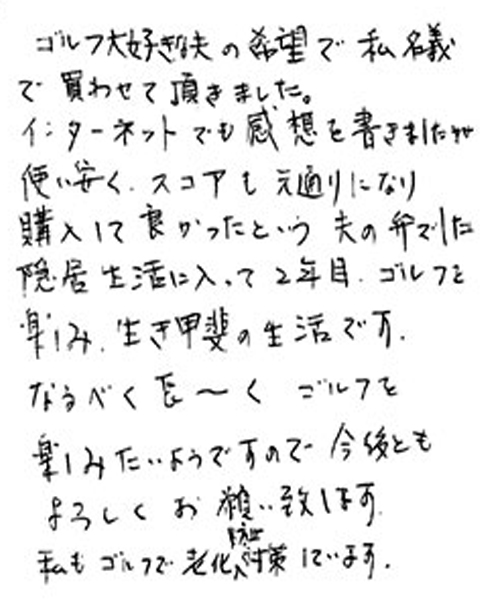 ゴルフ大好きな夫の希望で私名義
で買わせて頂きました。
インターネットでも感想を書きましたが
使い安く、スコアも元通りになり
購入して良かったという夫の弁でした
隠居生活に入って2年目、ゴルフを
楽しみ、生き甲斐の生活です。
なるべく長〜く ゴルフを
楽しみたいようですので今後とも
よろしくお願い致します。
私もゴルフで老化防止対策しています。